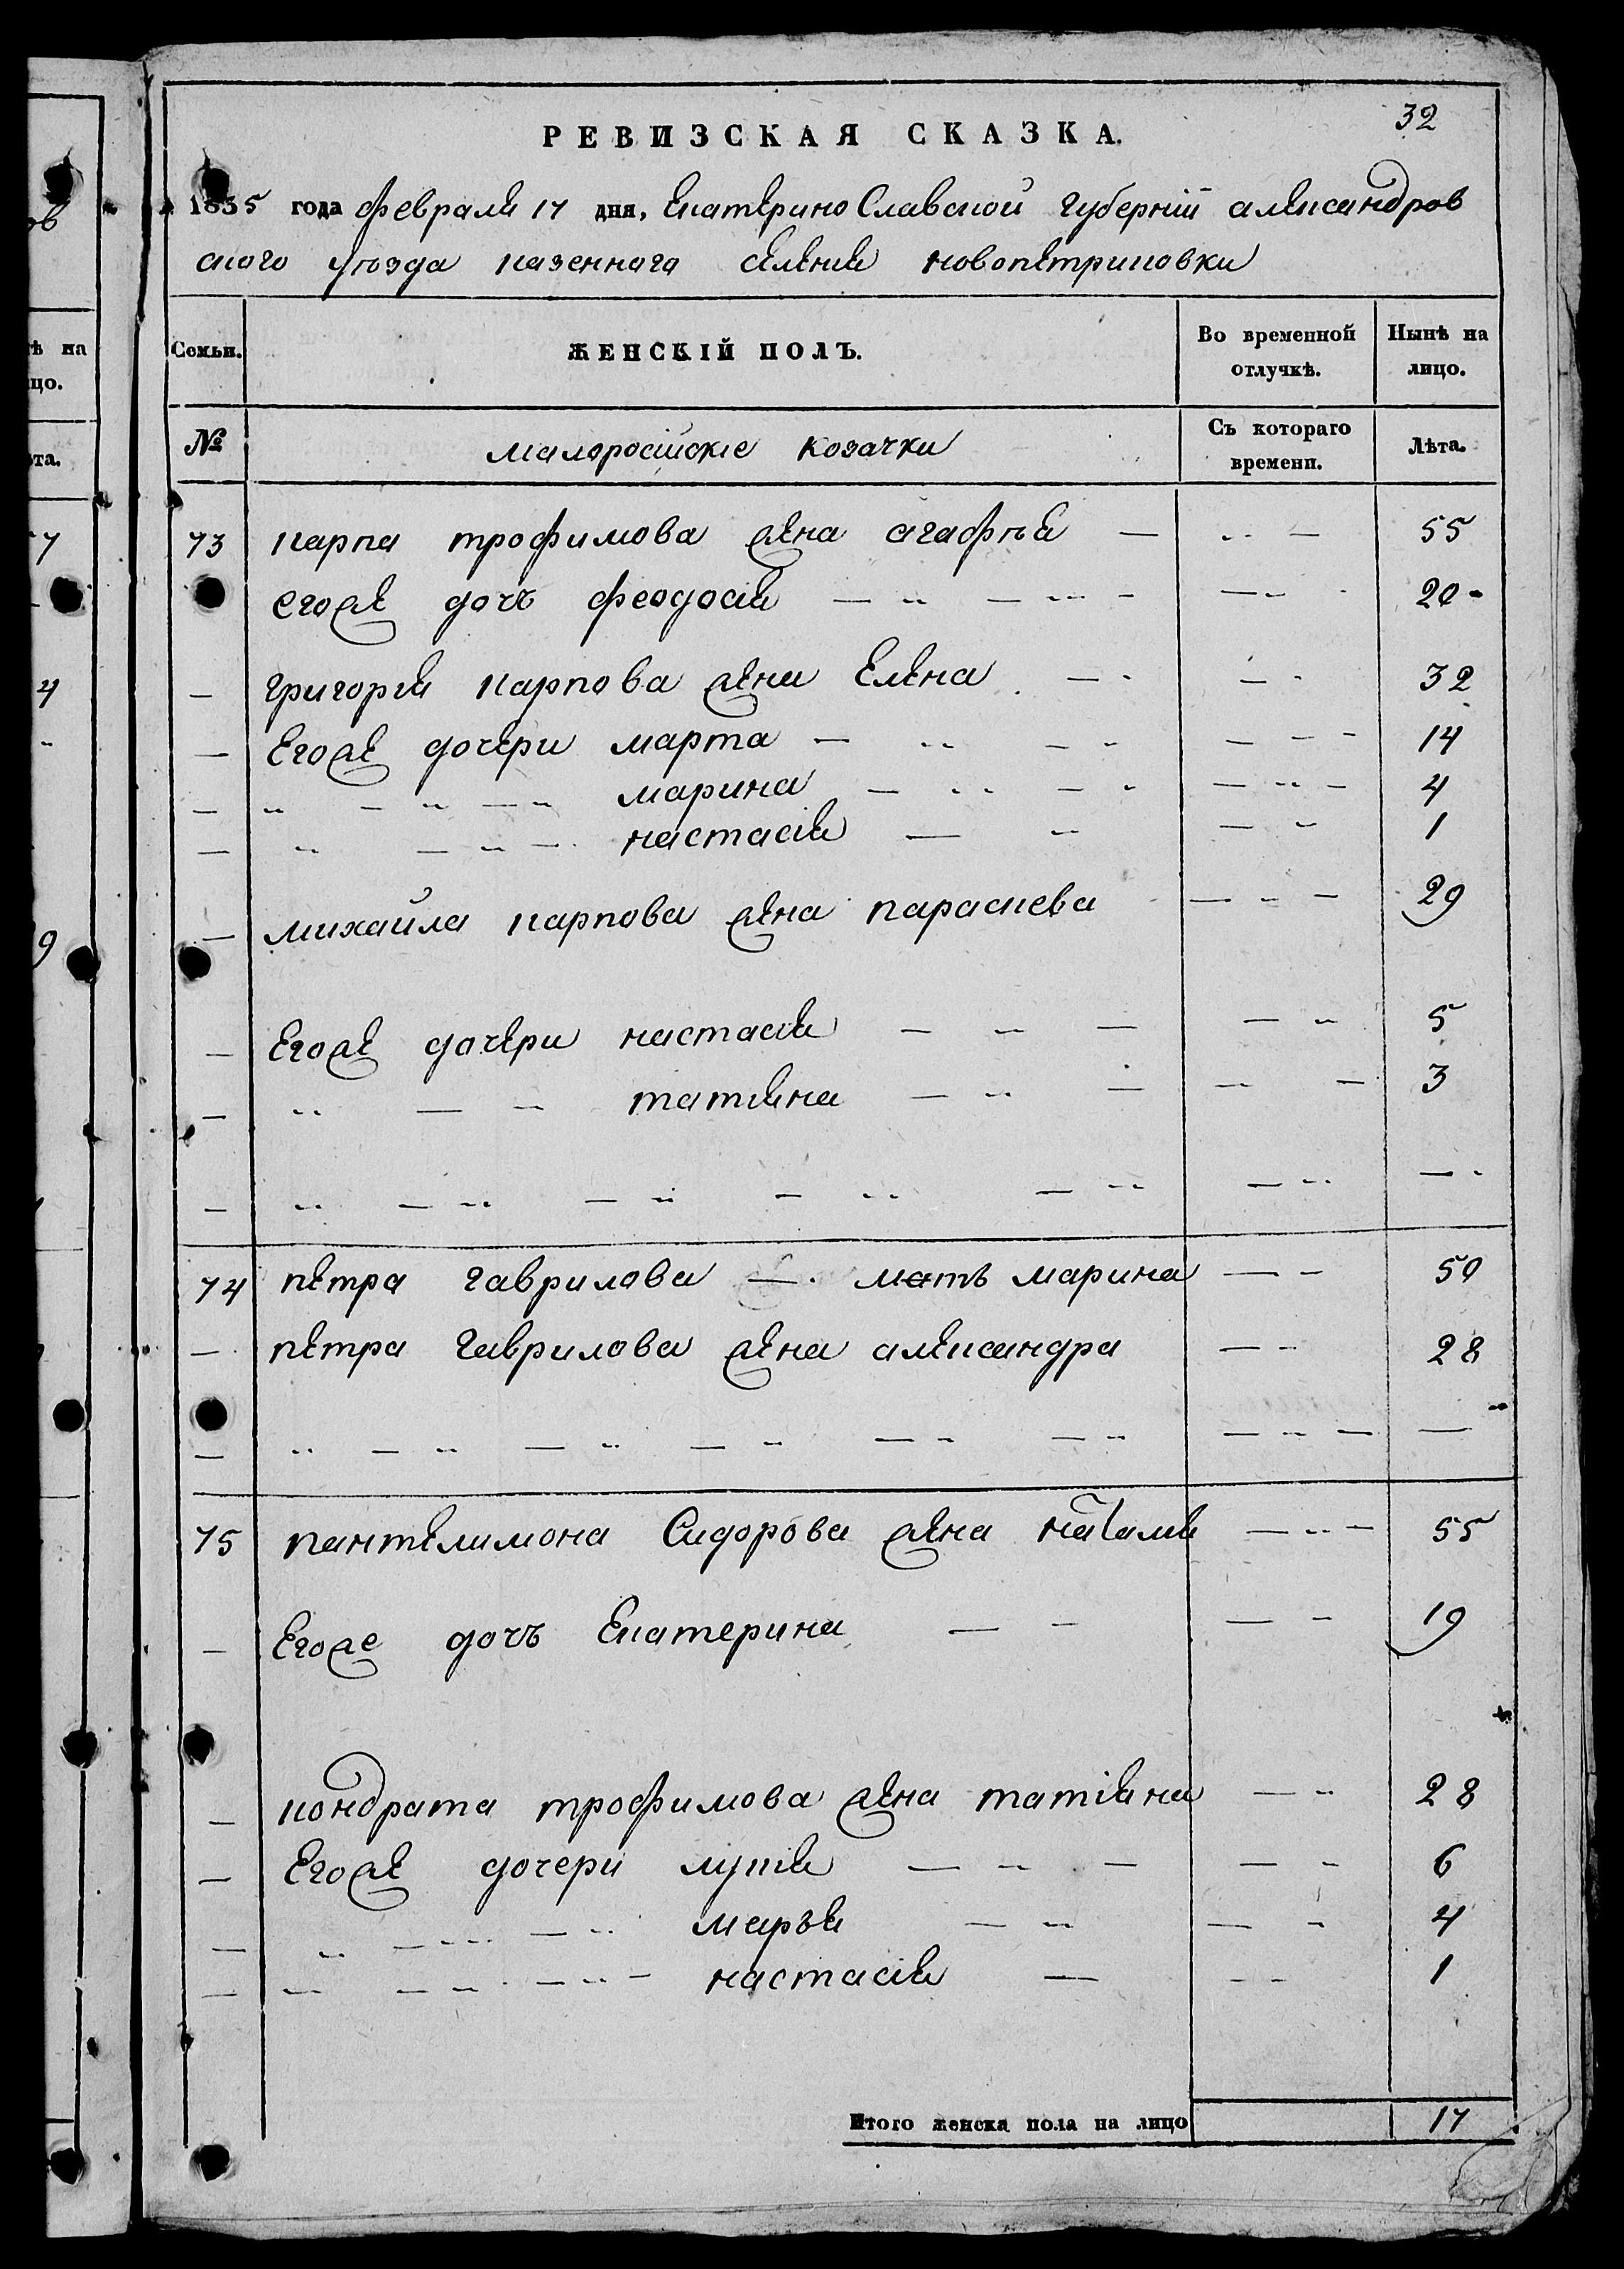 32
РЕВИЗСКАЯ СКАЗКА.
1835 года февраля 17 дня, Екатерино Славской губернии александров
скаго уъзда казеннаго селения новопетриковки
Семьи. ЖЕНСКІЙ ПОЛЪ. Во временной отлучкѣ. Нынѣ на лицо.
№ малоросийские козачки Съ котораго времени. Лѣта.
73 карпа трофимова жена агафья — 55
егоже дочь феодосия — 20
— григория карпова жена Елена — 32
— Егоже дочери марта — 14
— марина — 4
— настасия — 1
— михайла карпова жена параскева — 29
— Егоже дочери настасия — 5
— татияна — 3
74 петра гаврилова — мать марина — 50
— петра гаврилова жена александра — 28
75 пантелимона Сидорова жена наталия — 55
— Егоже дочь Екатерина — 19
— кондрата трофимова жена татияна — 28
— Егоже дочери лукия — 6
— марья — 4
— настасия — 1
Итого женска пола на лицо 17
ѣ на
цо.
ѣта.
7
4
9